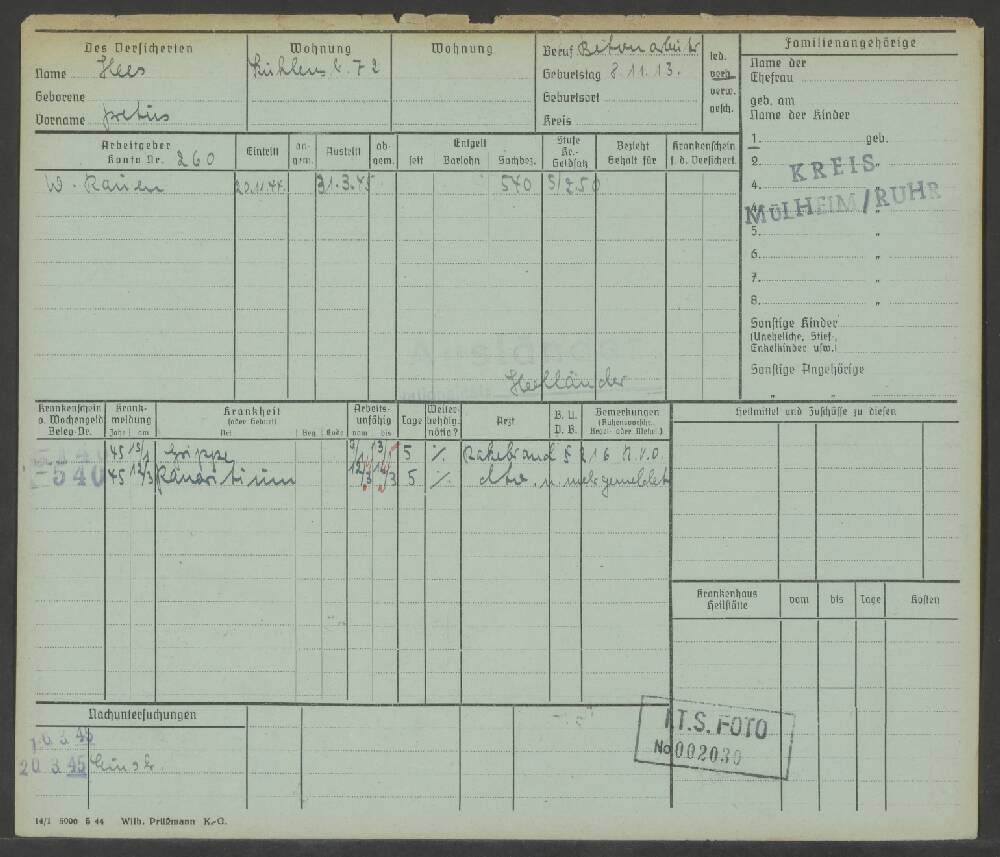 Des Versicherten
Name Hees
Geborene
Vorname Petrus
Wohnung
Wohnung
Beruf Betonarbeiter
Geburtstag 8.11.13.
Geburtsort
Kreis
led.
verh.
verw.
gesch.
Familienangehörige
Name der
Ehefrau
geb. am
Name der Kinder
1. geb.
2. "
KREIS
4. "
MÜLHEIM/RUHR
5. "
6. "
7. "
8. "
Sonstige Kinder
(Uneheliche, Stief-,
Enkelkinder usw.)
Sonstige Angehörige
" "
Arbeitgeber
Konto Nr. 260
Eintritt
an-
gem.
Austritt
ab-
gem.
Entgelt
seit Barlohn Sachbez.
Stufe
Kr.-
Geldsatz
Bezieht
Gehalt für
Krankenschein
f. d. Versichert.
W. Rauen 20.11.44. 31.3.45 540 5/250
Ausländer
Holländer
Krankenschein
o. Wochengeld
Beleg-Nr.
Krank-
meldung
Jahr am
Krankheit
(oder Geburt)
Art Beg. Ende
Arbeits-
unfähig
vom bis
Tage
Weiter-
behdlg.
nötig?
Arzt
B. U.
D. B.
Bemerkungen
(Ruhensvorschr.,
Regel- oder Mietal.)
Heilmittel und Zuschüsse zu diesen
45 13/1 Grippe 9/1 13/1 5 ٪ § 216 R.V.O.
540 45 12/3 12/3 5 ٪ dto. n. mehr gemeldet
Krankenhaus
Heilstätte
vom
bis
Tage
Kosten
Nachuntersuchungen
16 3. 45
20 3. 45
I.T.S. FOTO
No 002030
14/1 5000 5 44 Wilh. Prüßmann K.-G.